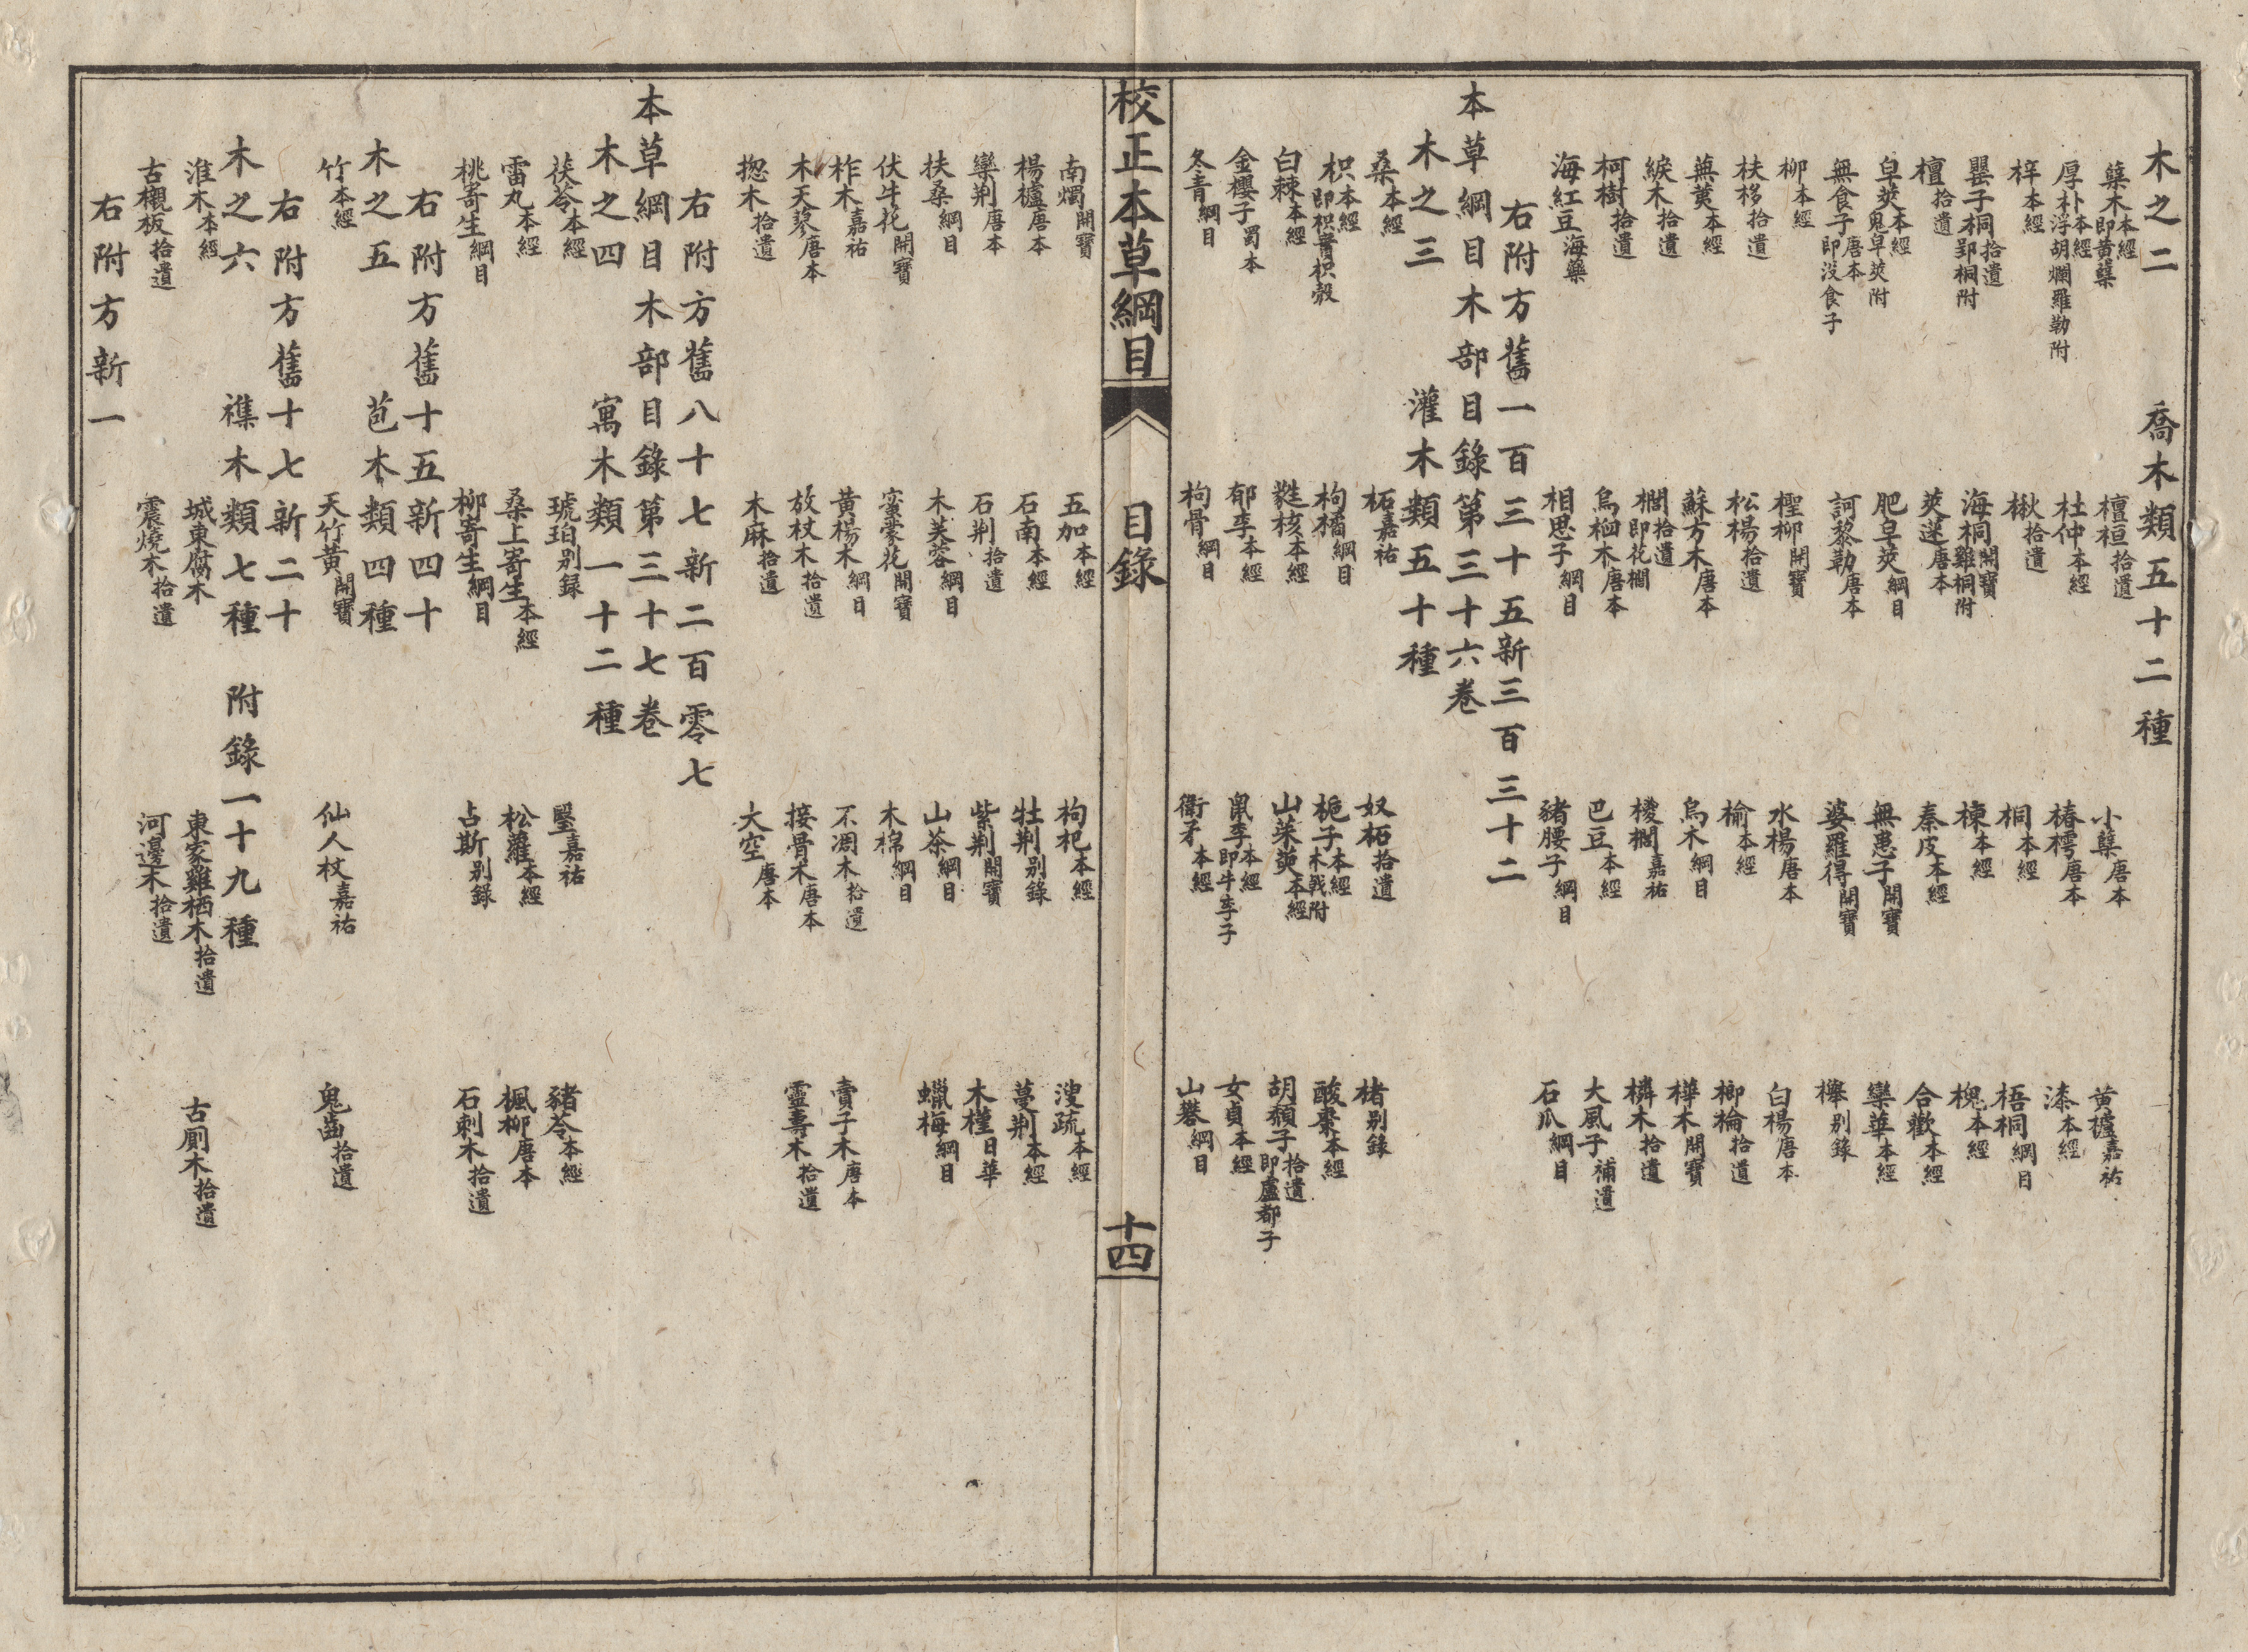 木之二 喬木類五十二種
蘗木本經即黃蘗 檀桓拾遺 小蘗唐本 黃櫨嘉祐
厚朴本經浮胡爛羅勒附 杜仲本經 椿樗唐本 漆本經
梓本經 楸拾遺 桐本經 梧桐綱目
罌子桐拾遺郢桐附 海桐開寶雞桐附 楝本經 槐本經
檀拾遺 莢蒾唐本 秦皮本經 合歡本經
皁莢本經鬼皁莢附 肥皁莢綱目 無患子開寶 欒華本經
無食子唐本即沒食子 訶黎勒唐本 婆羅得開寶 櫸别錄
柳本經 檉柳開寶 水楊唐本 白楊唐本
扶栘拾遺 松楊拾遺 榆本經 榔榆拾遺
蕪荑本經 蘇方木唐本 烏木綱目 樺木開寶
緱木拾遺 櫚拾遺即花櫚 椶櫚嘉祐 橉木拾遺
柯樹拾遺 烏桕木唐本 巴豆本經 大風子補遺
海紅豆海藥 相思子綱目 豬腰子綱目 石瓜綱目
右附方舊一百三十五新三百三十二
本草綱目木部目錄第三十六卷
木之三 灌木類五十種
桑本經 柘嘉祐 奴柘拾遺 楮别錄
枳本經即枳實枳殼 枸橘綱目 梔子本經木戟附 酸棗本經
白棘本經 蕤核本經 山茱萸本經 胡頹子拾遺即盧都子
金櫻子蜀本 郁李本經 鼠李本經即牛李子 女貞本經
冬青綱目 枸骨綱目 衛矛本經 山礬綱目
校正本草綱目 目錄 十四
南燭開寶 五加本經 枸杞本經 溲疏本經
楊櫨唐本 石南本經 牡荆别錄 蔓荆本經
欒荆唐本 石荆拾遺 紫荆開寶 木槿日華
扶桑綱目 木芙蓉綱目 山茶綱目 蠟梅綱目
伏牛花開寶 蜜蒙花開寶 木棉綱目
柞木嘉祐 黃楊木綱目 不凋木拾遺 賣子木唐本
木天蓼唐本 放杖木拾遺 接骨木唐本 靈壽木拾遺
楤木拾遺 木麻拾遺 大空唐本
右附方舊八十七新二百零七
本草綱目木部目錄第三十七卷
木之四 寓木類一十二種
茯苓本經 琥珀别録 瑿嘉祐 豬苓本經
雷丸本經 桑上寄生本經 松蘿本經 楓柳唐本
桃寄生綱目 柳寄生綱目 占斯别錄 石刺木拾遺
右附方舊十五新四十
木之五 苞木類四種
竹本經 天竹黃開寶 仙人杖嘉祐 鬼齒拾遺
右附方舊十七新二十
木之六 襍木類七種 附錄一十九種
淮木本經 城東腐木 東家雞栖木拾遺 古厠木拾遺
古櫬板拾遺 震燒木拾遺 河邊木拾遺
右附方新一